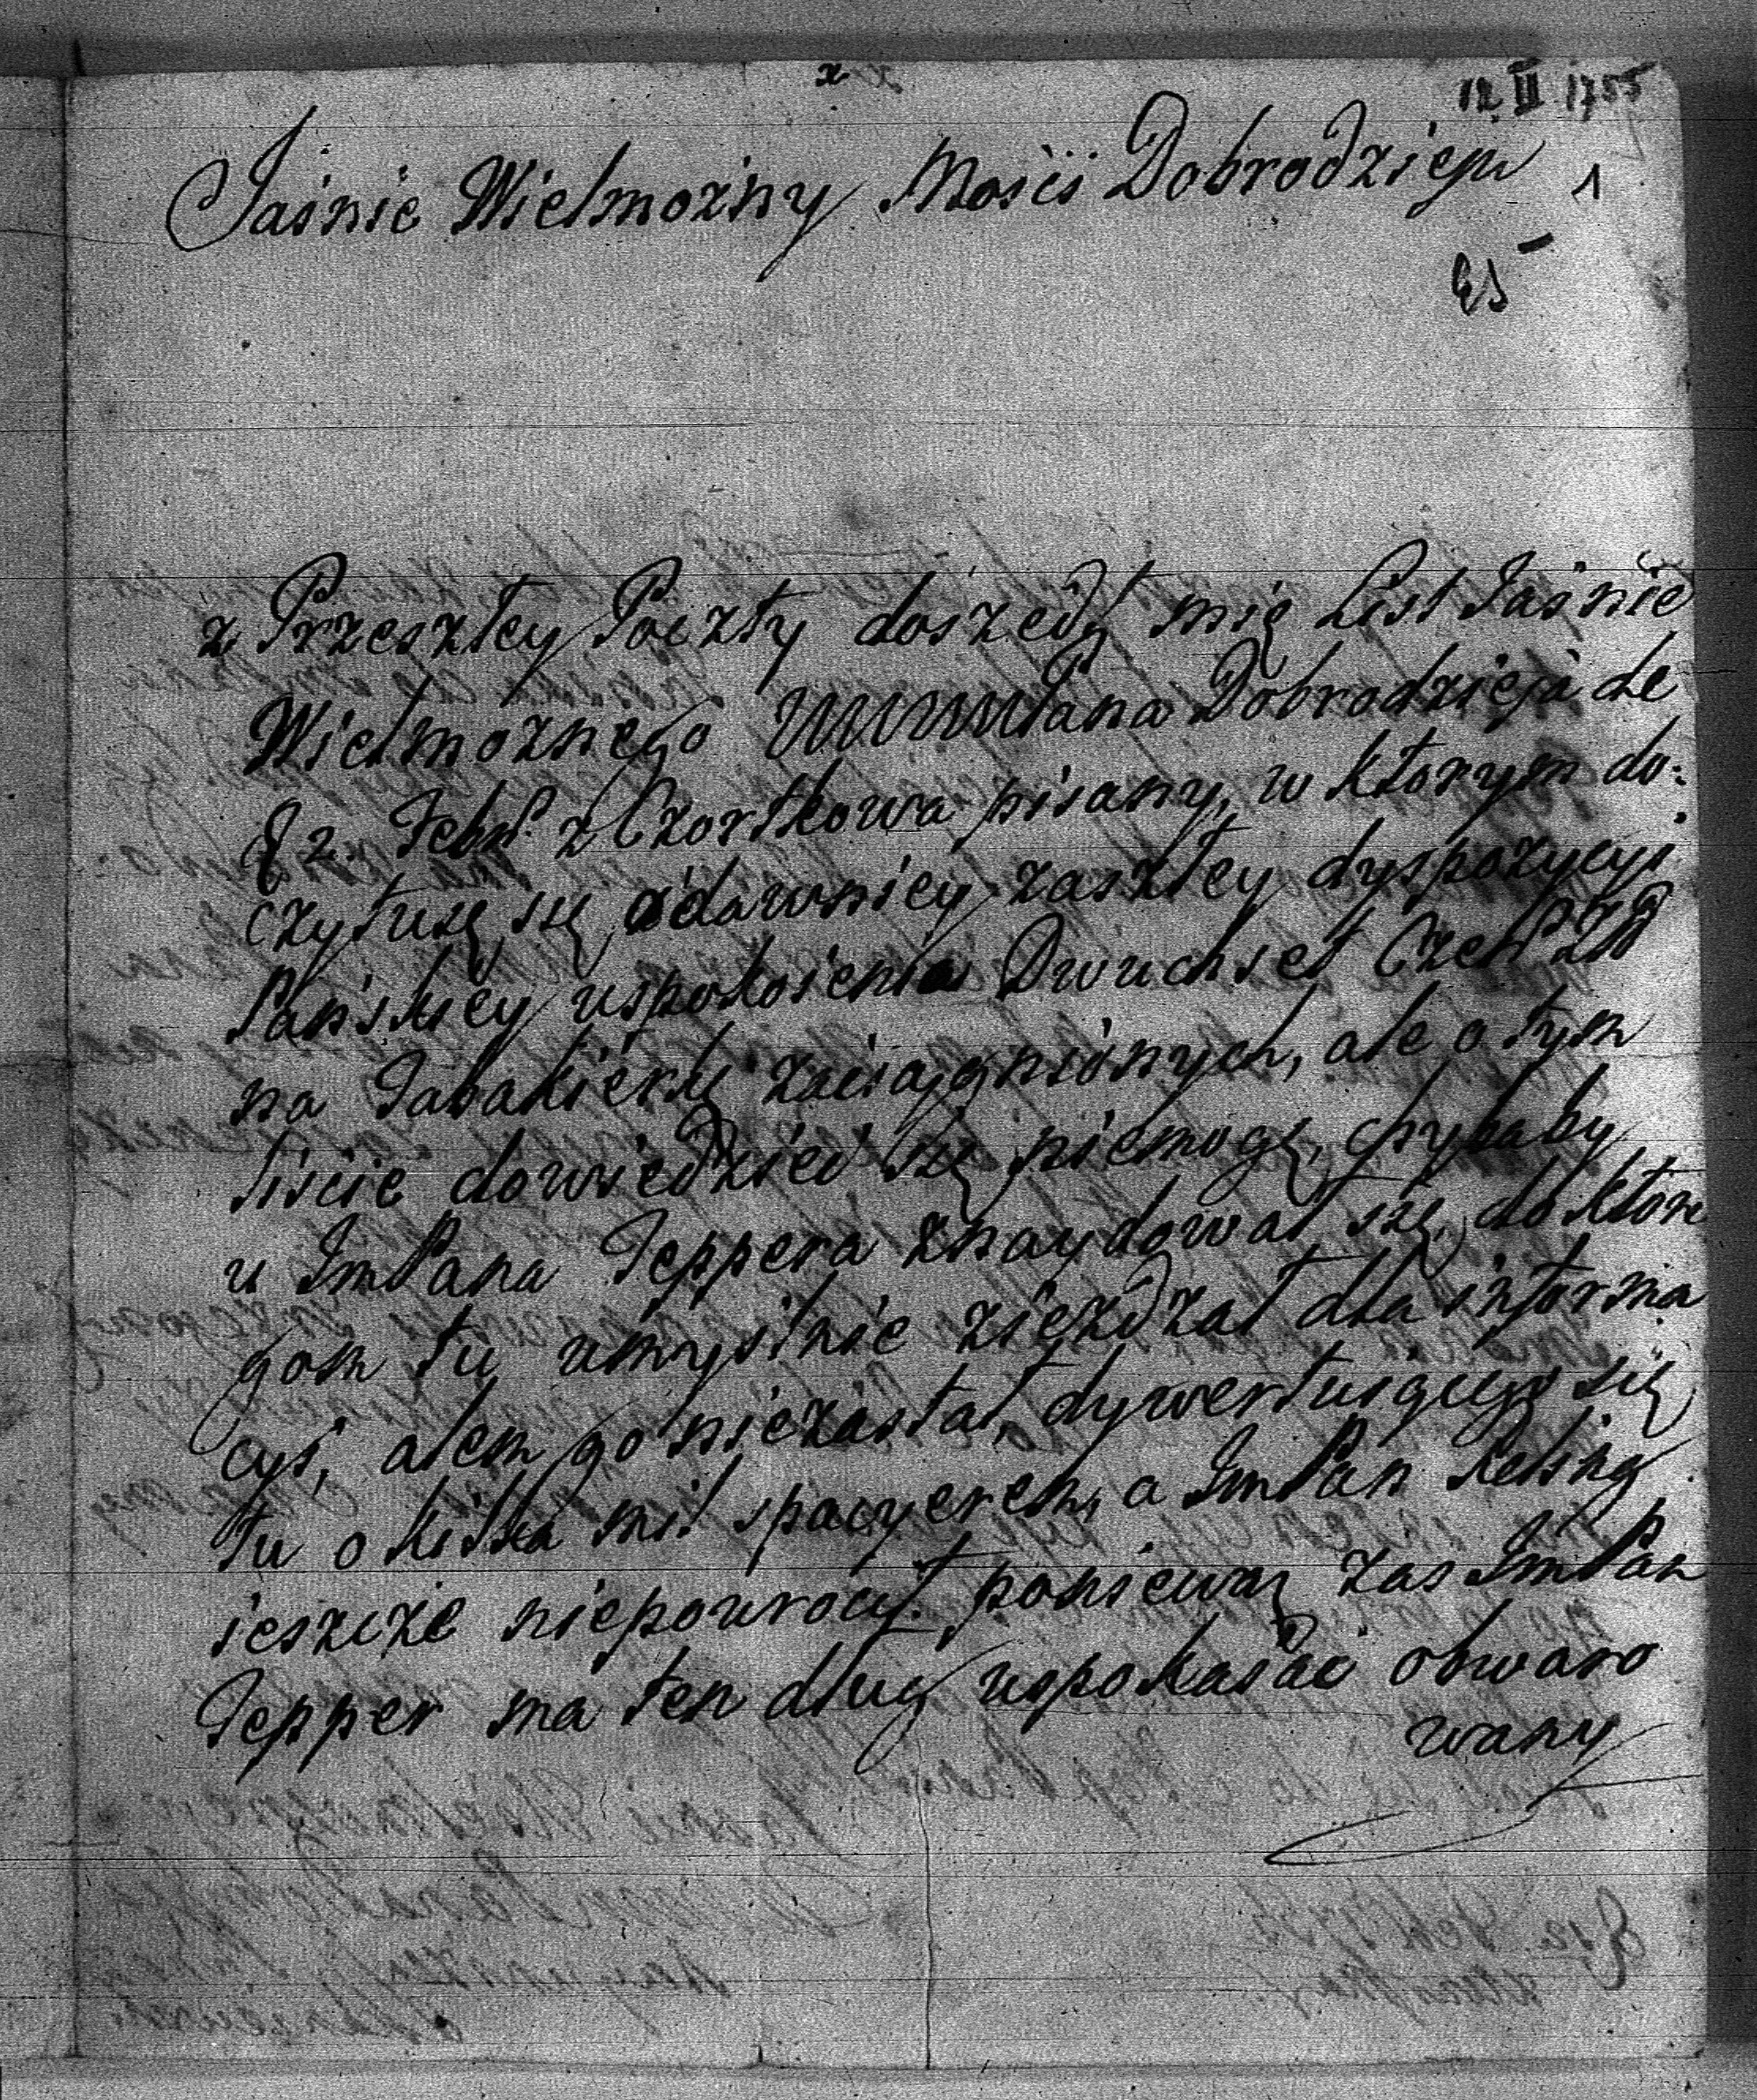 x
12 II 1755
Jaśnie Wielmożny Mości Dobrodzieju
1
z Przeszłey Poczty doszedł mię List Jaśnie
Wielmożnego WMMPana Dobrodzieja de
2. Febr. z Czortkowa pisany, w ktorym do:
czytuię się o dawniey zaszłey dyspozycyi
Pańskiey uspokoienia Dwuchset Czer Zło
na Tabakierkę zaciągnionych, ale o tym
liscie dowiedzieć się niemogę, chybaby
u ImPana Teppera znaydował się, do ktore
gom tu umyslnie zieżdzał dla informa
cyi, alem go niezastał, dywertuiącego się
tu o kilka mil spacyerem, a ImPan Reling
ieszcze niepowrocił. poniewaz zas ImPan
Tepper ma ten dług uspokaiać obwaro
wany